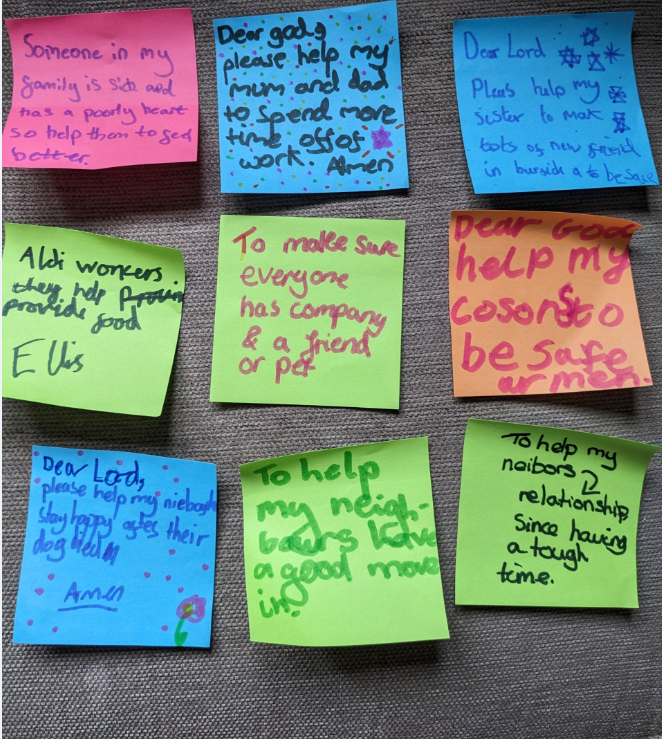 Someone in my
family is sick and
has a poorly heart
so help them to feel
better.
Dear god,
please help my
mum and dad
to spend more
time off of
work. Amen
Dear Lord
Pleas help my
sister to mak
lots of new
in a to be safe
Aldi workers
they help
provide food
Ellis
To make sure
everyone
has company
& a friend
or pet
Dear God
help my
cosons to
be safe
ar men.
Dear Lord,
please help my
stay happy after their
dog died
Amen
To help
my neigh-
bours have
a good move
in!
To help my
neibors
relationship
Since having
a tough
time.